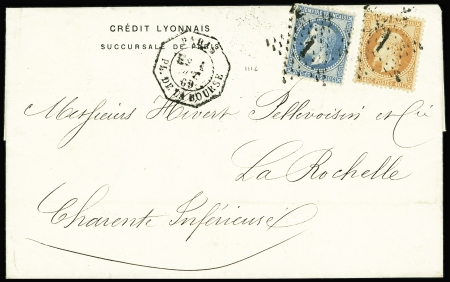 CRÉDIT LYONNAIS
SUCCURSALE DE PARIS
PARIS
69
PL. DE LA BOURSE
1
1
Messieurs Hivert Pellevoisin et Cie
La Rochelle
Charente Inférieure